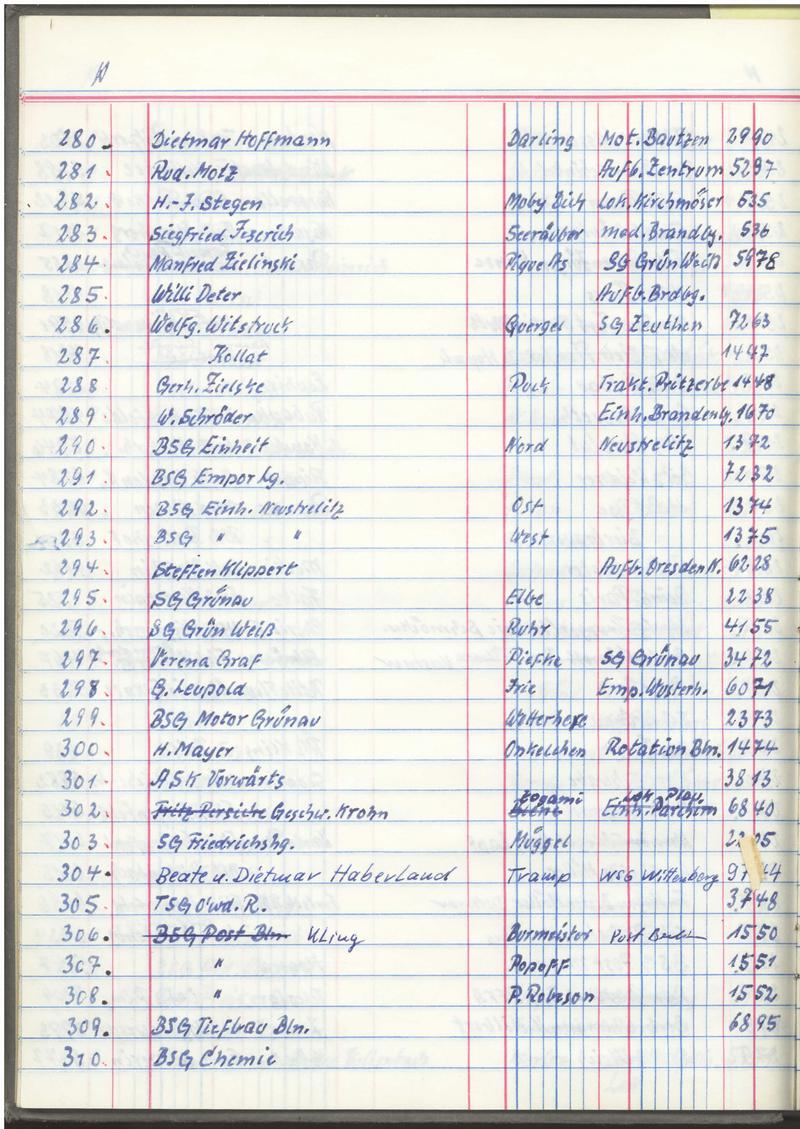 280. Dietmar Hoffmann Darling Mot. Bautzen 2990
281. Rud. Motz Aufb. Zentrum 5297
282. H.-J. Stegen Moby Dick Lok. Kirchmöser 535
283. Siegfried Med. Brandbg. 536
284. Manfred Zielinski Pique As SG Grün Weiß 5978
285. Willi Deter Aufb. Brdbg.
286. Wolfg. Witstruck Quergel SG Zeuthen 7263
287. Kollat 1447
288 Gerh. Zielske Puck Trakt. Pritzerbe 1448
289 W. Schröder Einh. Brandenbg. 1670
290. BSG Einheit Nord Neustrelitz 1372
291. BSG Empor Lg. 7232
292. BSG Einh. Neustrelitz Ost 1374
293. BSG " " West 1375
294. Steffen Klippert Aufb. Dresden N. 6228
295. SG Grünau Elbe 2238
296. SG Grün Weiß Ruhr 4155
297. Verena Graf Piefke SG Grünau 3472
298. G. Leupold Irie Emp. Wusterh. 6071
299. BSG Motor Grünau Wetterhexe 2373
300. H. Mayer Onkelchen Rotation Bln. 1474
301. ASK Vorwärts 3813
Lok. Plau
302. Fritz Persicke Geschw. Krohn Biene Einh. Parchim 6840
303. SG Friedrichshg. Müggel
304. Beate u. Dietmar Haberland Tramp WSG Wittenberg
305. TSG O'wd. R. 3748
306. BSG Post Bln. Kling Burmeister Post Berlin 1550
307. " Popoff 1551
308. " P. Robeson 1552
309. BSG Tiefbau Bln. 6895
310. BSG Chemie